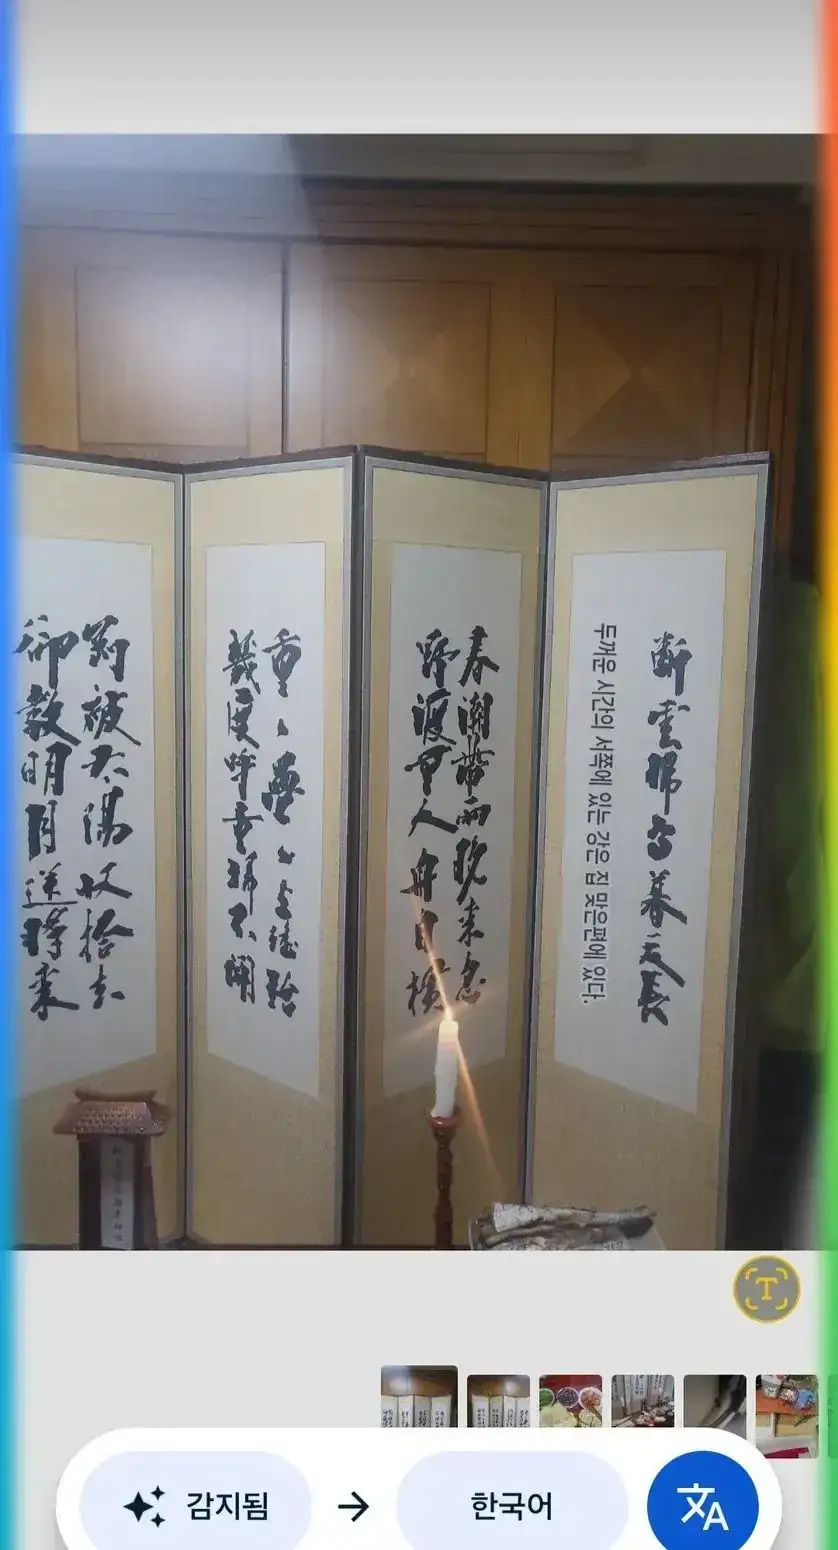 断雲歸鳥暮天長
두꺼운 시간의 서쪽에 있는 강은 집 맞은편에 있다.
春潮帶雨晚来急
野渡無人舟自橫
重〻疊〻上瑤臺
幾度呼童掃不開
剛被太陽收拾去
却教明月送將来
감지됨 → 한국어